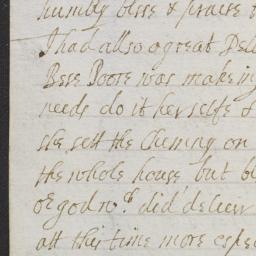 humbly bless & praise
I had allso a great Del
Bess Poore was making
needs do it her selfe &
she sett the Chimny on
the whole house but bl
god
did deliver
att this time more espec